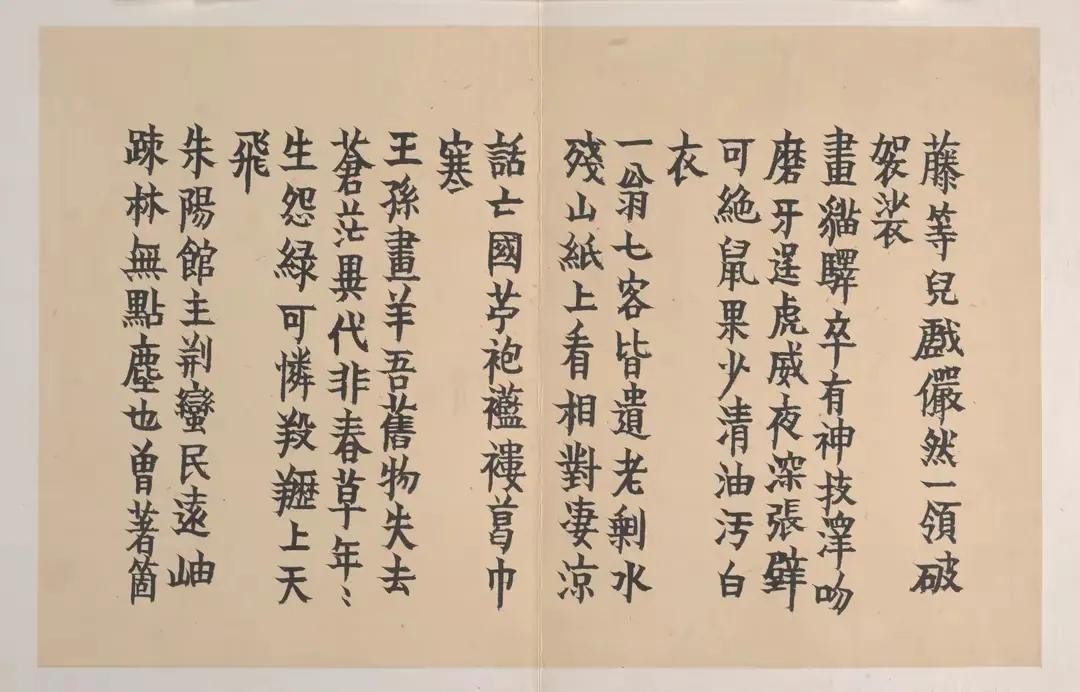 藤等兒戲儼然一領破
袈裟
畫貓驛卒有神技澤吻
磨牙逞虎威夜深張壁
可絶鼠果少清油汚白
衣
一翁七客皆遺老剩水
殘山紙上看相對淒涼
話亡國芧袍襤褸葛巾
寒
王孫畫羊吾舊物失去
蒼茫異代非春草年〻
生怨綠可憐羖䍽上天
飛
朱陽館主荆蠻民遠岫
疎林無點塵也曾著箇